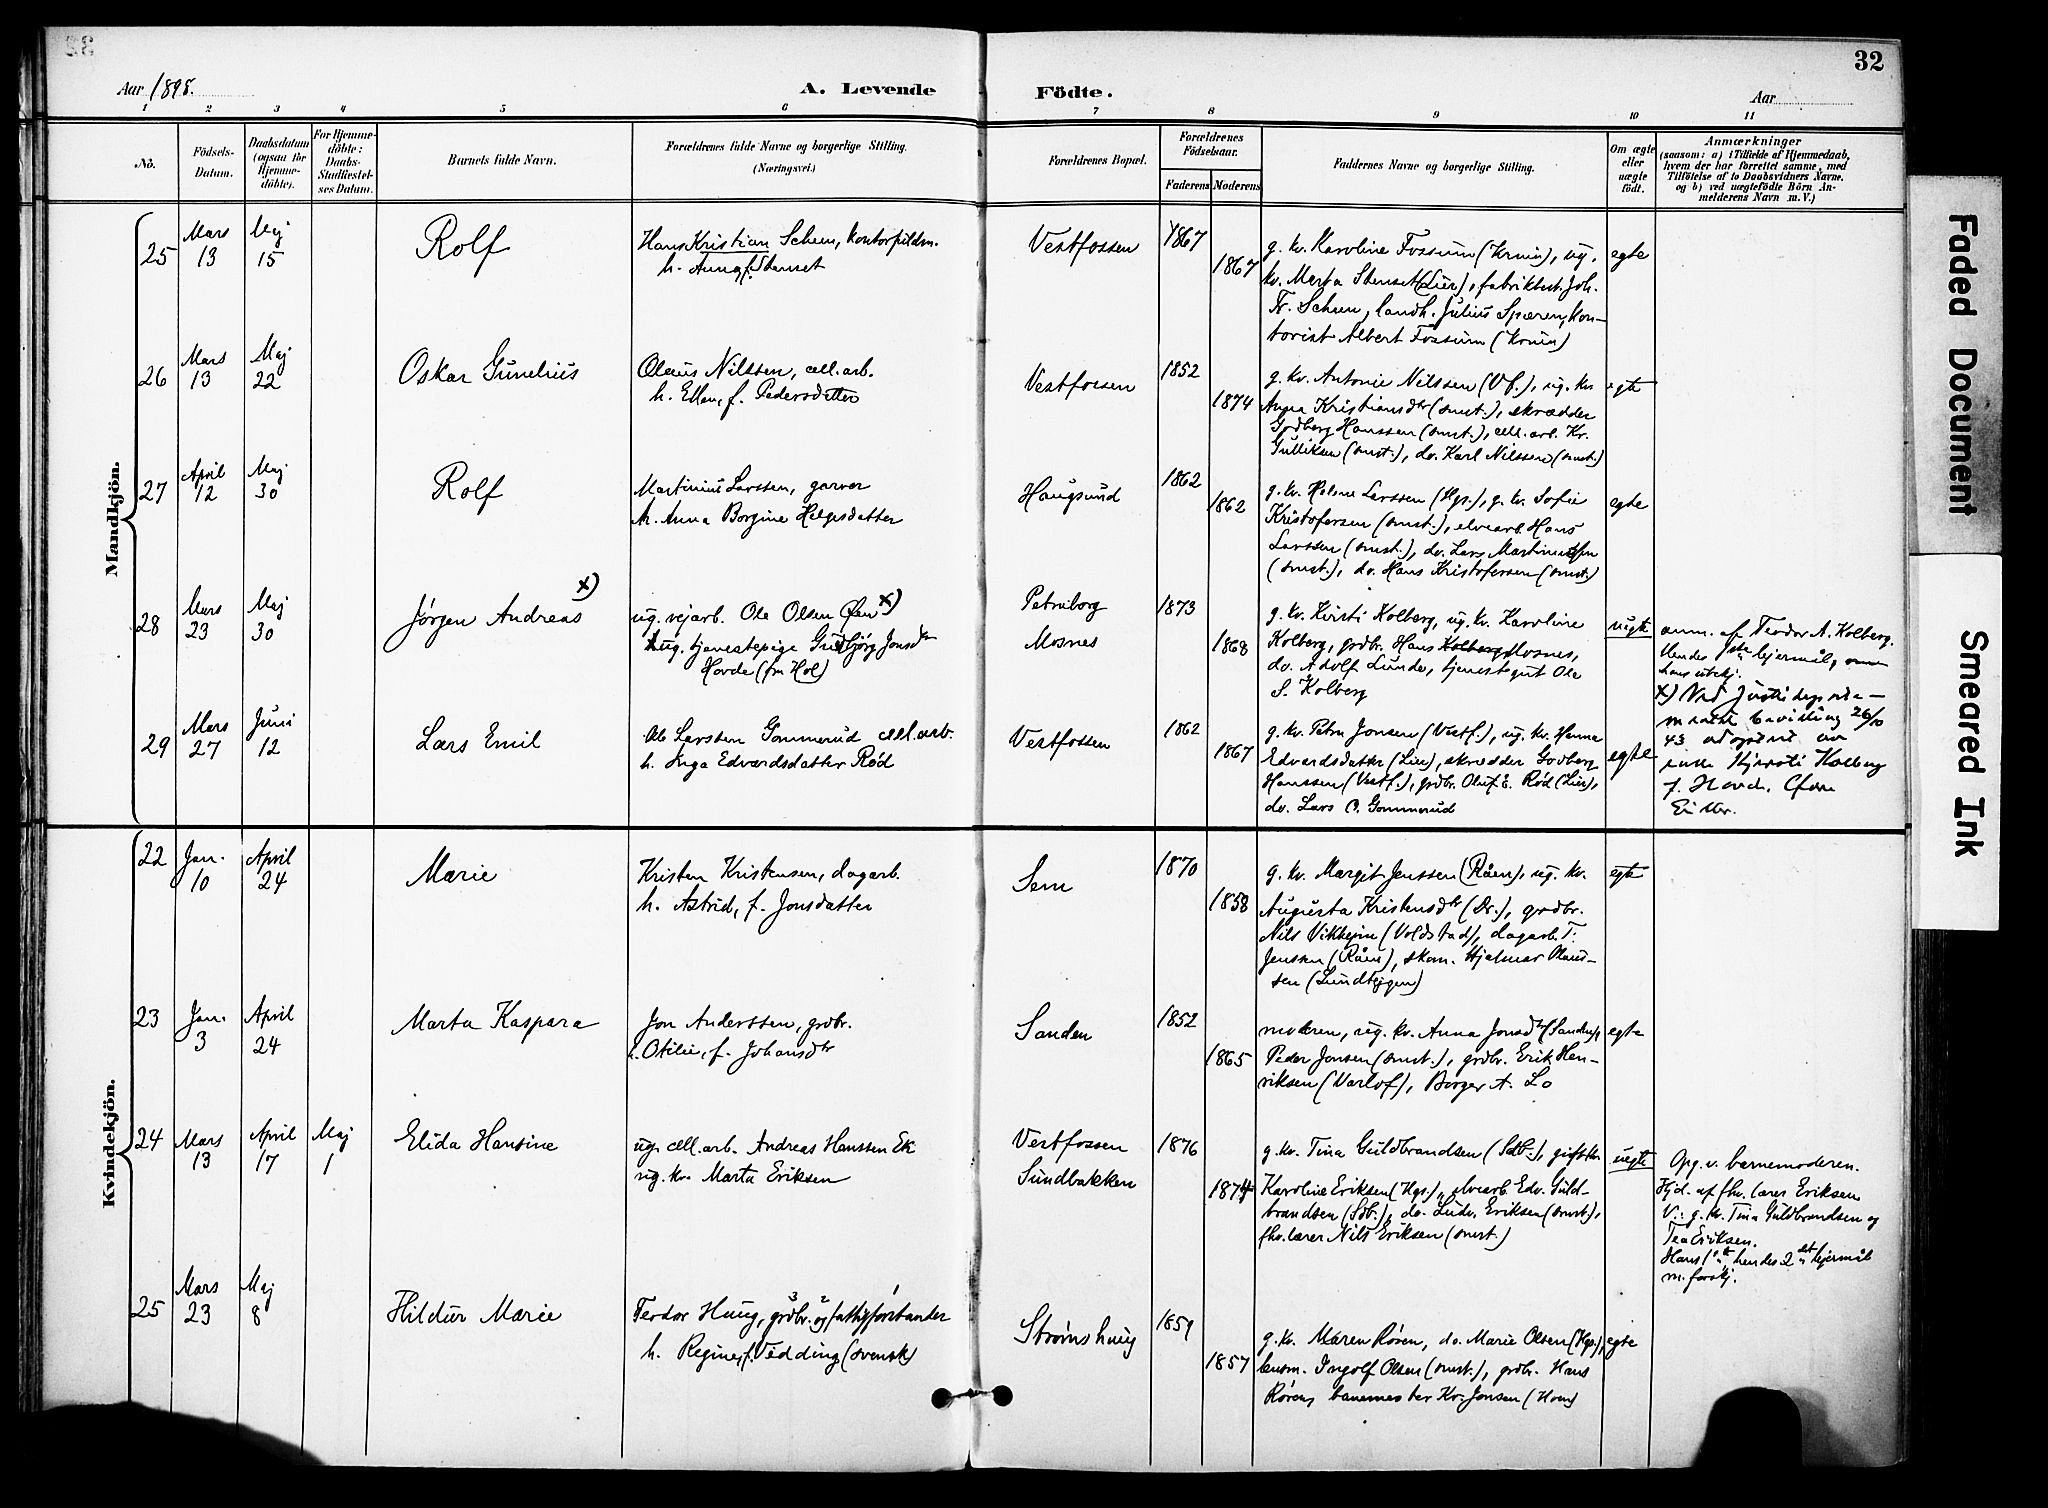 32
Aar 1898.
A. Levende Födte.
Aar
1 2 3 4 5 6 7 8 9 10 11
No.
Födsels-
Datum.
Daabsdatum
(ogsaa för
Hjemme-
döbte).
For Hjemme-
döbte:
Daabs-
Stadfæstel-
ses Datum.
Barnets fulde Navn.
Forældrenes fulde Navne og borgerlige Stilling.
(Næringsvei.)
Forældrenes Bopæl.
Forældrenes
Födselsaar.
Faderens Moderens
Faddernes Navne og borgerlige Stilling.
Om ægte
eller
uægte
født.
Anmærkninger
(saasom: a) i Tilfælde af Hjemmedaab,
hvem der har forrettet samme, med
Tilföielse af to Daabsvidners Navne,
og b) ved uægtefödte Börn An-
melderens Navn m. V.)
Mandkjön.
25
Mars
13
Maj
15
Rolf
Hans Kristian Scheen, kontorfuldm.
h. Anna, f. Stenset
Vestfossen
1867
1867
g. kv. Karoline Fossum (Krnin), ug.
kv. Marta Stenset (Lier), fabrikbest. Joh.
Fr. Scheen, landh. Julius Spæren, kon-
torist Albert Fossum (Krnin)
egte
26
Mars
13
Maj
22
Oskar Gunelius
Olaus Nilssen, cell.arb.
h. Ellen, f. Pedersdatter
Vestfossen
1852
1874
g. kv. Antonie Nilssen (Vf.), ug. kv.
Anna Kristiansdtr (smst.), skrædder
Godberg Hanssen (smst.), cell.arb. Kr.
Gulliksen (smst.), do. Karl Nilssen (smst.)
egte
27
April
12
Maj
30
Rolf
Martinius Larssen, garver
h. Anna Borgine Helgesdatter
Haugsund
1862
1862
g. kv. Helene Larssen (Hgs.), g. kv. Sofie
Kristofersen (smst.), elvearb. Hans
Larssen (smst.), do. Lars Martiniussen
(smst.), do. Hans Kristofersen (smst.)
egte
28
Mars
23
Maj
30
Jørgen Andreas x)
ug. vejarb. Ole Olsen Øen x)
ug. tjenestepige Gudbjørg Jonsdtr
Hovde (fra Hol)
Petruborg
Mosnes
1873
1868
g. kv. Kristi Kolberg, ug. kv. Karoline
Kolberg, grdbr. Hans Kolberg Mosnes,
do. Adolf Lunde, tjenestgut Ole
S. Kolberg
uegte
anm. af Teodor A. Kolberg.
Hendes lejermål,
hans ubekj.
x) Ved Justisdeps
bevilling 26/10
43 adoptert av
enke Kjersti Kolberg
f. Hovde, Øvre
Eiker.
29
Mars
27
Juni
12
Lars Emil
Ole Larssen Gommerud cell.arb.
h. Inga Edvardsdatter Rød
Vestfossen
1862
1867
g. kv. Petra Jonsen (Vestf.), ug. kv. Hanna
Edvardsdatter (Lier), skrædder Godberg
Hanssen (Vestf.), grdbr. Oluf E. Rød (Lier),
do. Lars O. Gommerud
egte
Kvindekjön.
22
Jan.
10
April
24
Marie
Kristen Kristensen, dagarb.
h. Astrid, f. Jonsdatter
Sem
1870
1858
g. kv. Margit Jenssen (Råen), ug. kv.
Augusta Kristensdtr (Dr.), grdbr.
Nils Vikhejm (Voldstad), dagarb. T.
Jenssen (Råen), skom. Hjalmar Olaus-
sen (Lundtejgen)
egte
23
Jan.
3
April
24
Marta Kaspara
Jon Anderssen, grdbr.
h. Otilie, f. Johansdtr
Sanden
1852
1865
moderen, ug. kv. Anna Jonsdtr (Sanden),
Peder Jonsen (smst.), grdbr. Erik Hen-
riksen (Varlof), Borger A. Lo
egte
24
Mars
13
April
17
Maj
1
Elida Hansine
ug. cell.arb. Andreas Hanssen Ek
ug. kv. Marta Eriksen
Vestfossen
Sundbakken
1876
1874
g. kv. Tina Guldbrandsen (Sdb.), gift kv.
Karoline Eriksen (Hgs.), elvearb. Edv. Guld-
brandsen (Sdb.), do. Ludv. Eriksen (smst.),
fhv. lærer Nils Eriksen (smst.)
uegte
Opg. v. barnemoderen.
Hjd. af fhv. lærer Eriksen
V.: g. kv. Tina Guldbrandsen og
Tea Eriksen.
Hans 1ste, hendes 2det lejermål
m. forskj.
25
Mars
23
Maj
8
Hildur Marie
Teodor Haug, grdbr. og fattigforstander
h. Regine, f. Vedding (svensk)
Strømshaug
1859
1857
g. kv. Maren Røren, do. Marie Olsen (Hgs),
lensm. Ingolf Olsen (smst.), grdbr. Hans
Røren, banemester Kr. Jonsen (Hom)
egte
Faded Document
Smeared Ink